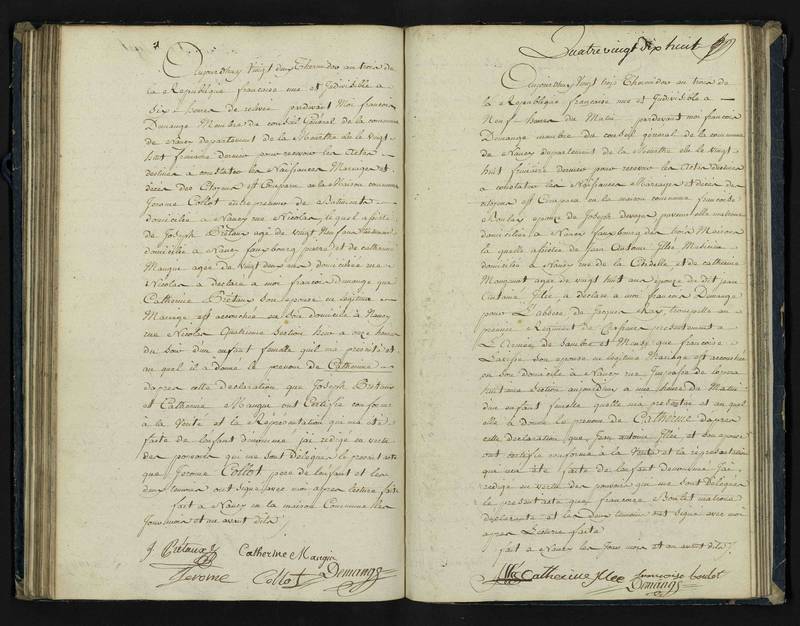 Aujourdhuy vingt deux Thermidor an trois de
la Republique française une et Indivisible a
Six heures de relevée pardevant Moi francois
Demange Membre du conseil Général de la commune
de Nancy departement de la Meurthe elu le vingt
huit frimaire dernier pour recevoir les Actes
destinés a constater les Naissances Mariages et
décès des Citoyens est Comparu en la Maison commune
Jerome Collot entrepreneur de Batiments
domicilié a Nancy rue Nicolas, lequel assisté
de Joseph agé de vingt Neuf ans
domicilié a Nancy faux bourg pierre et de catherine
Mangin agée de vingt deux ans domiciliée rue
Nicolas a déclaré a moi françois demange que
Catherine son epouse en legitime
Mariage est accouchée en son domicile a Nancy
rue Nicolas Quatrieme Section hier a onze heures
du soir d'un enfant femelle qu'il ma présenté et
au quel il a donné le prenom de Catherine
dapres cette Declaration que Joseph
et Catherine Mangin ont Certifié conforme
à la Verité et la Représentation qui ma été
faite de l'enfant denommée jai redigé en vertu
des pouvoirs qui me sont Délégués le present acte
que Jerome Collot pere de l'enfant et les
deux temoins ont signé avec moi apres lecture faite
fait a Nancy en la maison Commune les
Jour mois et an avant dits
Catherine Mangin
Jerome Collot Demange
Quatre vingt dix huit
Aujourdhuy Vingt trois Thermidor an trois de
la Republique française une et Indivisible a
Neuf heures du Matin pardevant moi francois
Demange membre du conseil général de la commune
de Nancy departement de la Meurthe elu le vingt
huit frimaire dernier pour recevoir les Actes destinés
a constater les Naissances Mariages et décès des
citoyens est Comparue en la maison commune francoise
Boulet epouse de Joseph
domiciliée a Nancy faux bourg des trois Maisons
la quelle assistée de Jean Antoine
domicilié a Nancy rue de la Citadelle et de catherine
agée de vingt huit ans epouse du dit jean
Antoine a déclaré a moi francois Demange
pour L'absence de Jacques
premier Regiment de Chasseurs presentement a
L'Armée de Sambre et Meuse que francoise
son epouse en legitime Mariage est accouchée
en son domicile a Nancy rue
huitieme Section aujourd'hui a une heure du Matin
dun enfant femelle quelle ma presenté et au quel
elle a donné le prenom de Catherine dapres
cette declaration que Jean antoine et son epouse
ont certifié conforme a la Verité et la représentation
qui ma été faite de l'enfant denommée Jai
redigé en vertu des pouvoirs qui me sont Délégués
le present acte que francoise Boulet matrone
declarante et les deux temoins ont signé avec moi
apres Lecture faite
fait a Nancy les Jour mois et an avant dits
Catherine francoise boulet
Demange